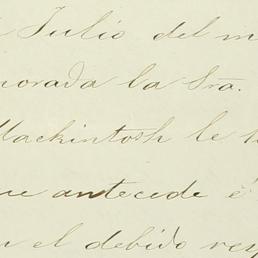 Julio del
morada la Sra.
Mackintosh le
que antecede é
el debido